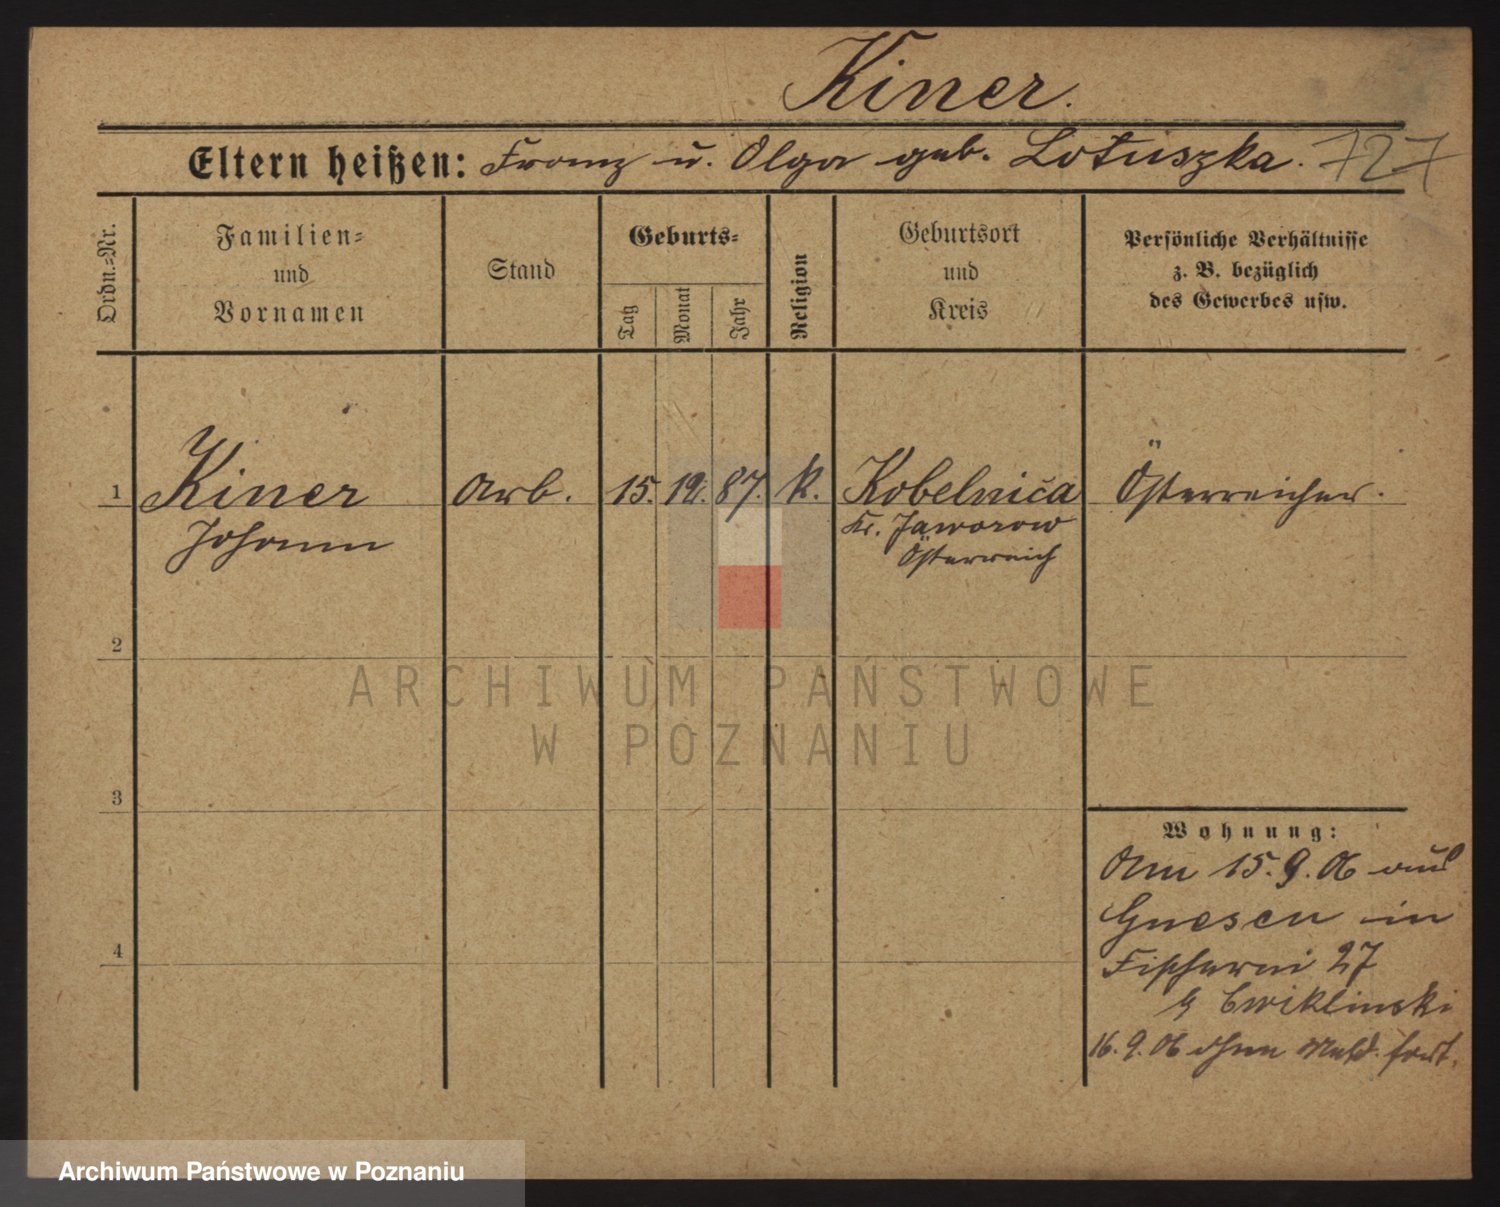 Kiner.
Eltern heißen: Franz u. Olga geb. Lotuszka. 727
Ordn.-Nr.
Familien-
und
Vornamen
Stand
Geburts-
Tag
Monat
Jahr
Religion
Geburtsort
und
Kreis
Persönliche Verhältnisse
z. B. bezüglich
des Gewerbes usw.
1 Kiner Arb. 15. 12. 87. k. Kobelnica Österreicher.
Johann Kr. Jaworow
Österreich
2
3
4
Wohnung:
Am 15.9.06 aus
Gnesen in
Fischerei 27
b Cwiklinski
16.9.06 ohne Meld. fort.
ARCHIWUM PAŃSTWOWE
W POZNANIU
Archiwum Państwowe w Poznaniu